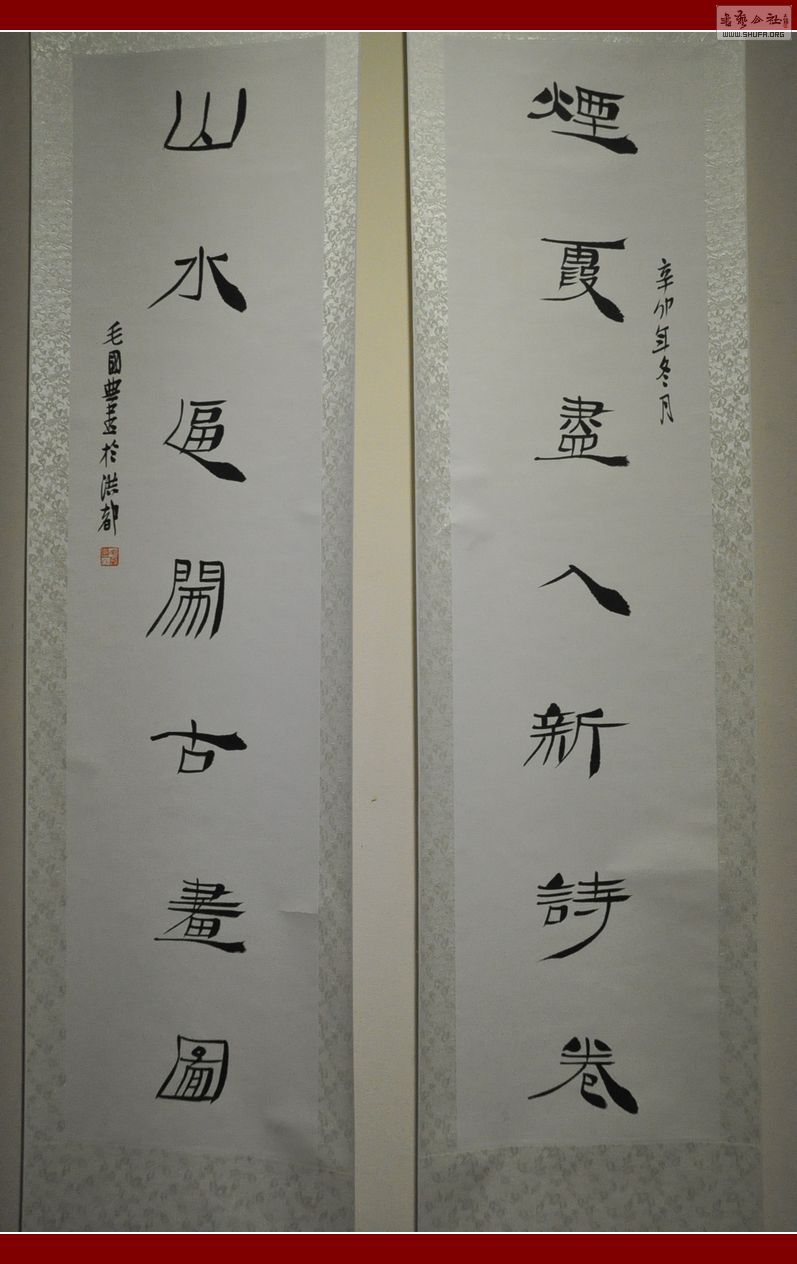 煙霞盡入新詩卷
辛卯年冬月
山水逼開古畫圖
毛國典書於洪都
書藝公社
WWW.SHUFA.ORG